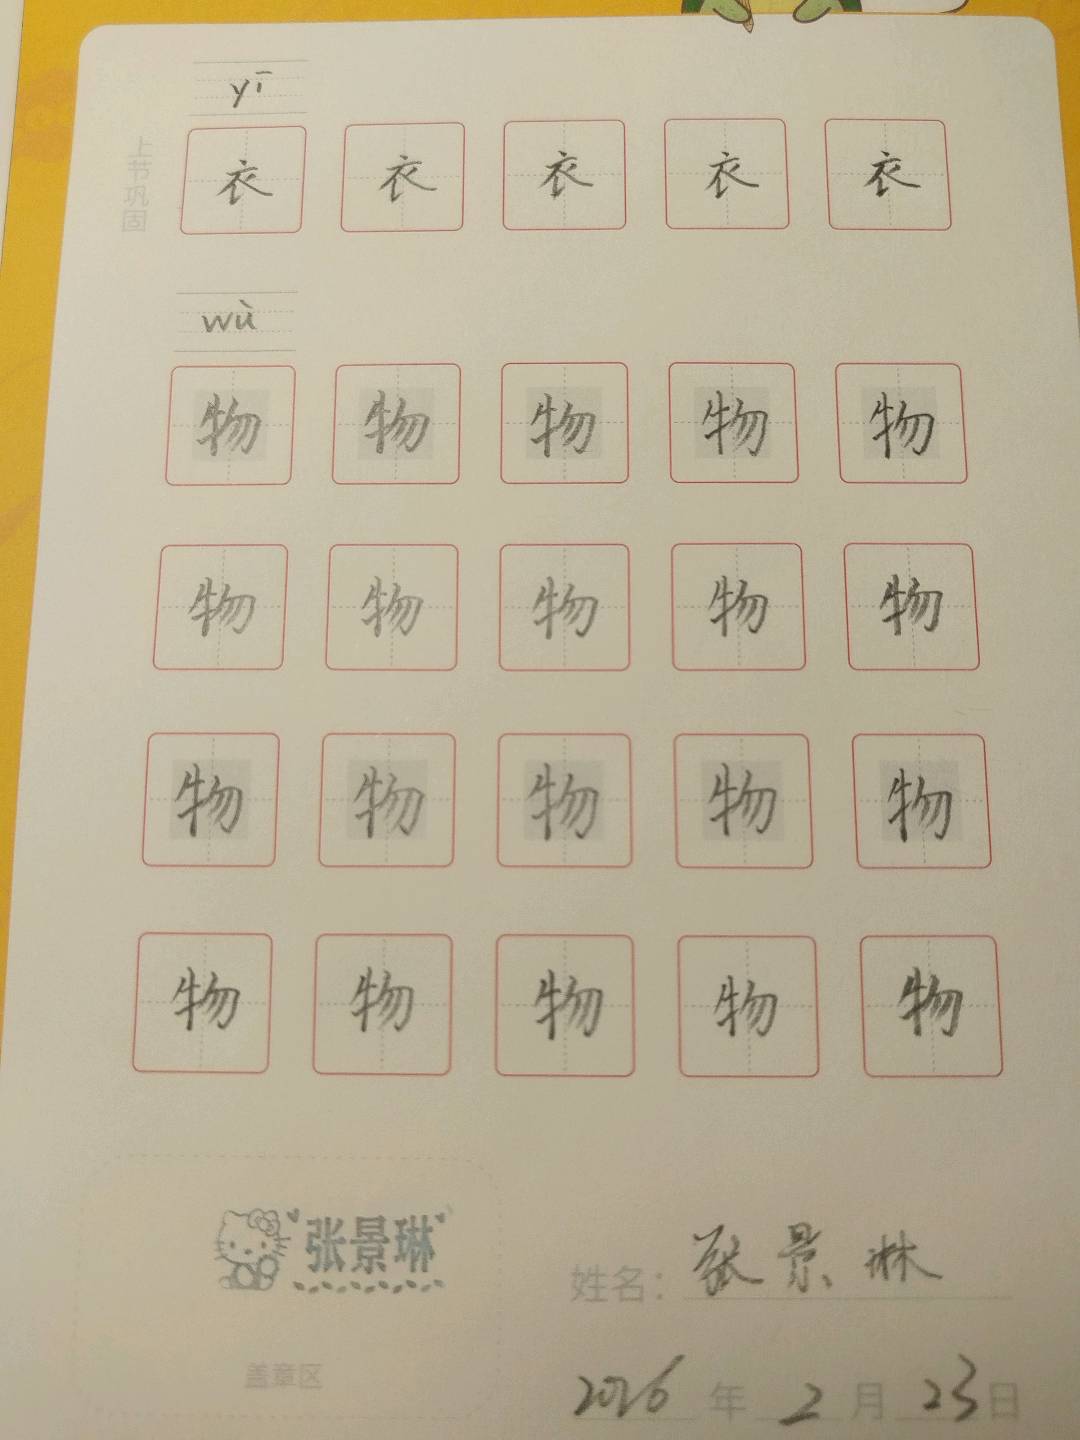 yī
上节巩固
衣 衣 衣 衣 衣
wù
物 物 物 物 物
物 物 物 物 物
物 物 物 物 物
物 物 物 物 物
张景琳
盖章区
姓名：张景琳
2026年2月23日